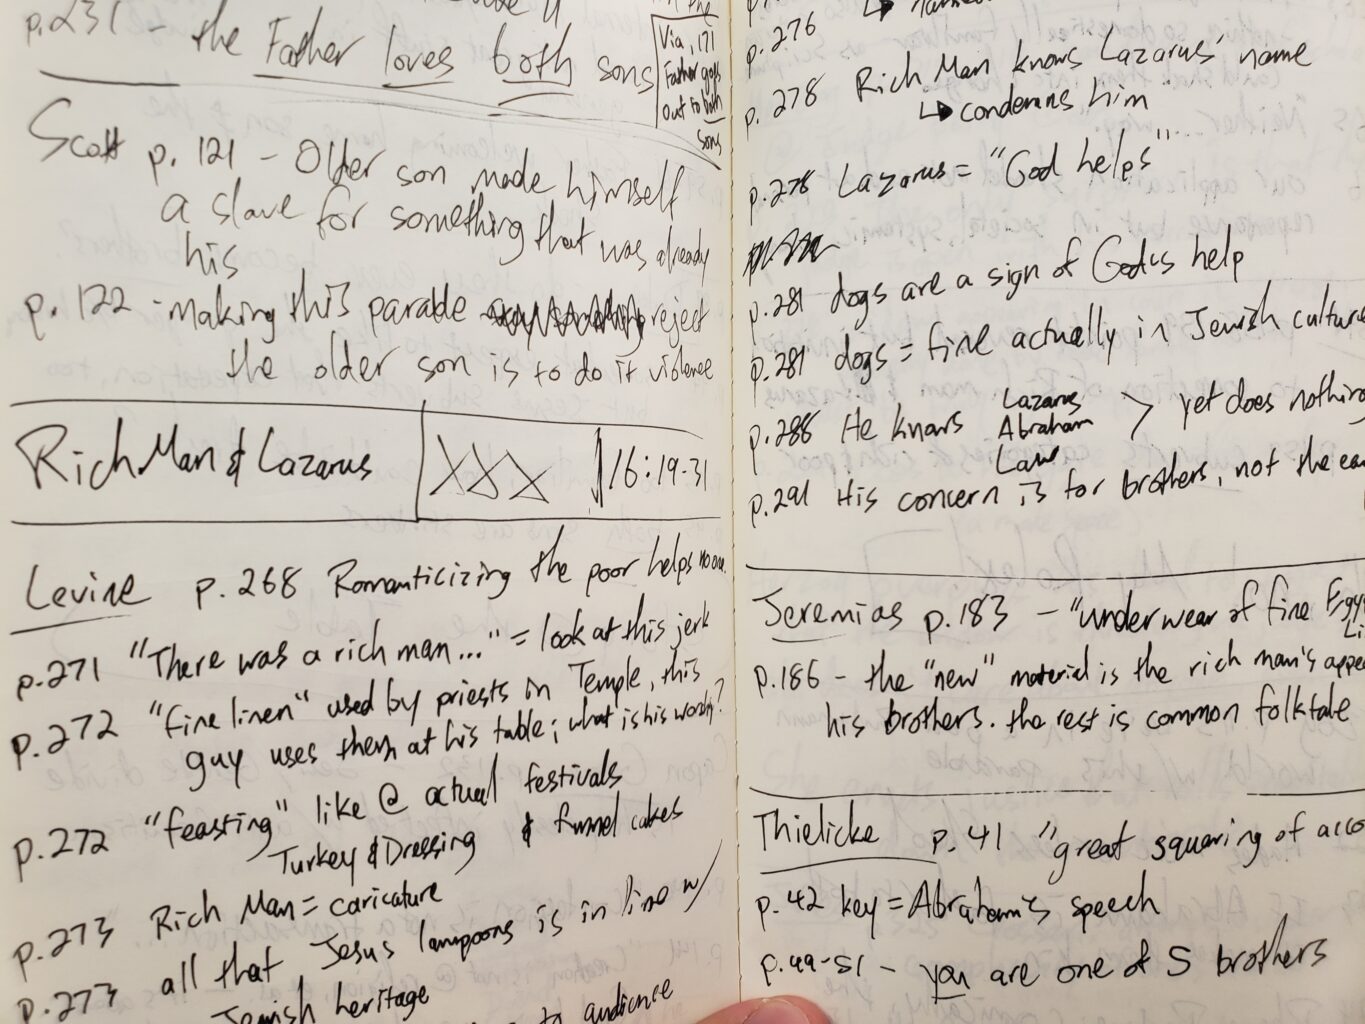 p.231 - the Father loves both sons
Via, 171
Father goes
out to both
sons
Scott p. 121 - Older son made himself
a slave for something that was already
his
p. 122 - making this parable reject
the older son is to do it violence
Rich Man & Lazarus
16:19-31
Levine p. 268 Romanticizing the poor helps no one
p.271 "There was a rich man..." = look at this jerk
p.272 "fine linen" used by priests in Temple, this
guy uses them at his table; what is his worship?
p.272 "feasting" like @ actual festivals
Turkey & Dressing & funnel cakes
p.273 Rich Man = caricature
p.273 all that Jesus lampoons is in line w/
Jewish heritage
to audience
p.276
p.278 Rich Man knows Lazarus' name
↳ condemns him
p.278 Lazarus = "God helps"
p.281 dogs are a sign of God's help
p.281 dogs = fine actually in Jewish culture
p.288 He knows Lazarus
Abraham
Law > yet does nothing
p.291 His concern is for brothers, not the
Jeremias p.183 - "underwear of fine
p.186 - the "new" material is the rich man's
his brothers. the rest is common folktale
Thielicke p.41 "great squaring of
p.42 key = Abraham's speech
p.49-51 - you are one of 5 brothers